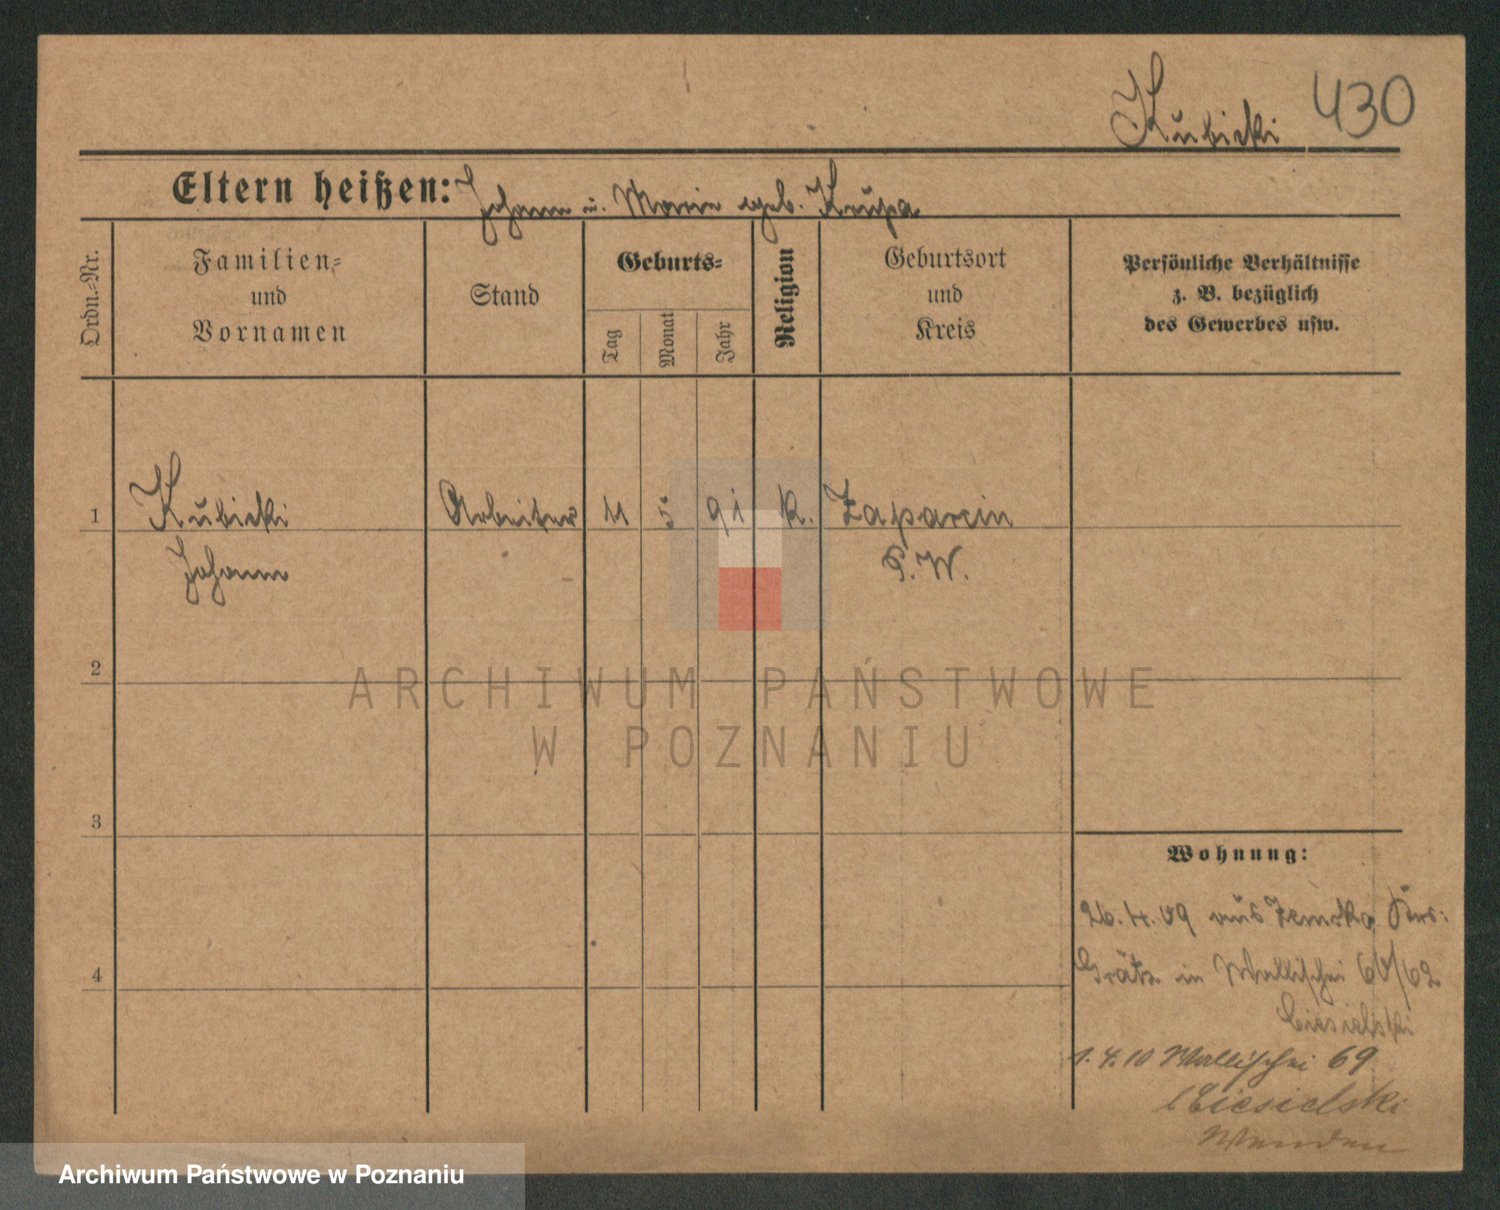 Kubicki 430
Eltern heißen: Johann u. Marie geb. Krupa
Ordn.-Nr.
Familien-
und
Vornamen
Stand
Geburts-
Tag
Monat
Jahr
Religion
Geburtsort
und
Kreis
Persönliche Verhältnisse
z. B. bezüglich
des Gewerbes usw.
1 Kubicki Arbeiter 11 5 91 k.
Johann P. W.
2
ARCHIWUM PAŃSTWOWE
W POZNANIU
3
Wohnung:
26. 4. 09 aus Krs:
4
Grätz in Wallischei 61/62
Ciesielski
1. 4. 10 Wallischei 69
b Ciesielski
Archiwum Państwowe w Poznaniu